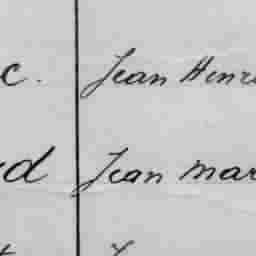 c. Jean Henri
d Jean Mar